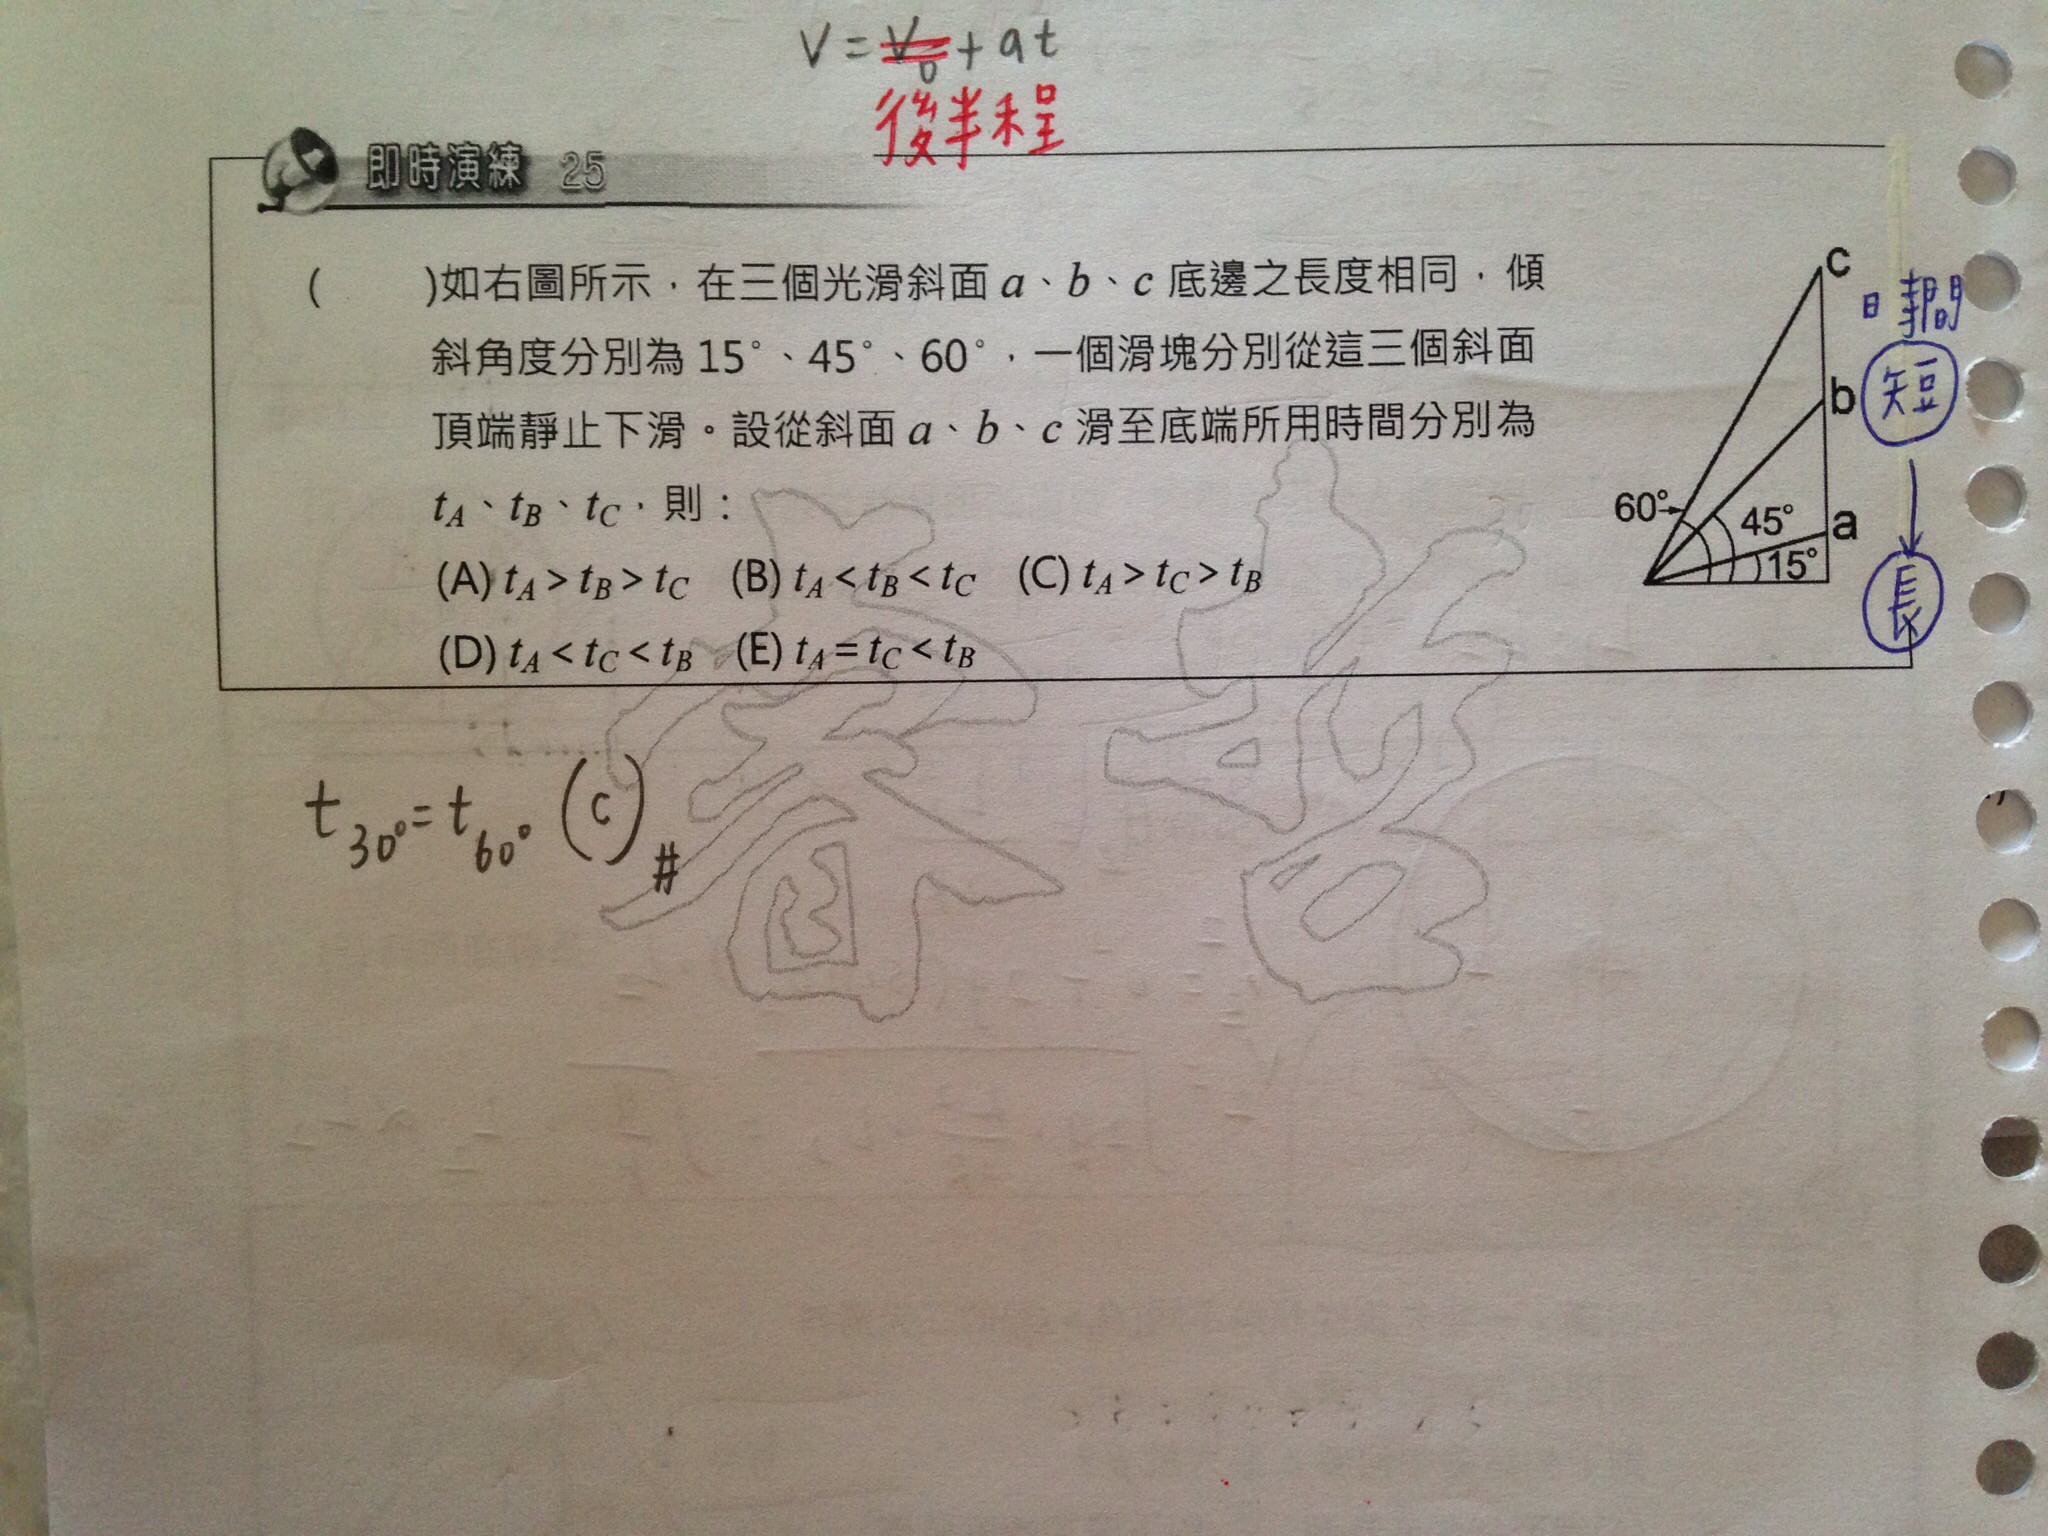 V = V₀ + at
後半程
即時演練 25
(　　)如右圖所示，在三個光滑斜面 a、b、c 底邊之長度相同，傾
斜角度分別為 15°、45°、60°，一個滑塊分別從這三個斜面
頂端靜止下滑。設從斜面 a、b、c 滑至底端所用時間分別為
tA、tB、tC，則：
(A) tA > tB > tC (B) tA < tB < tC (C) tA > tC > tB
(D) tA < tC < tB (E) tA = tC < tB
c
b
a
60°
45°
15°
時間
短
長
t30° = t60° (c)#